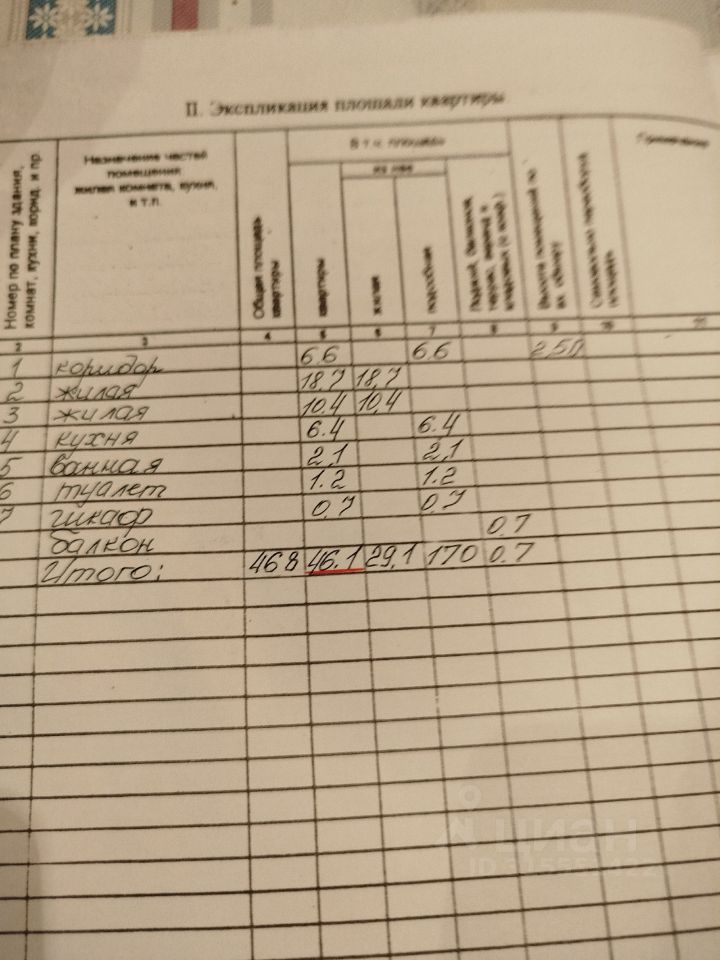 II. Экспликация площади квартиры
Номер по плану здания, комнат, кухни, корид. и пр.
Назначение частей помещения
жилая комната, кухня, и т.п.
Общая площадь квартиры
В т.ч. площадь
из нее
квартиры
жилая
подсобная
Высота помещений по
2 3 4 5 6 7 8 9 10 11
1 коридор 6.6 6.6 2.50
2 жилая 18,7 18,7
3 жилая 10.4 10,4
4 кухня 6.4 6.4
5 ванная 2,1 2,1
6 туалет 1.2 1.2
7 шкаф 0,7 0,7
балкон 0.7
Итого: 46 8 46.1 29,1 170 0.7
циан